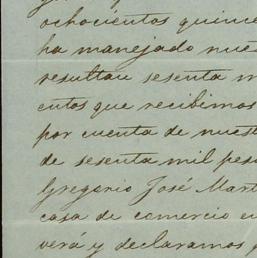 ochocientos quince
ha manejado nues
resultan sesenta m
entos que recibimos
por cuenta de nuest
de sesenta mil pes
Gregorio José Mart
casa de comercio en
verá y declaramos